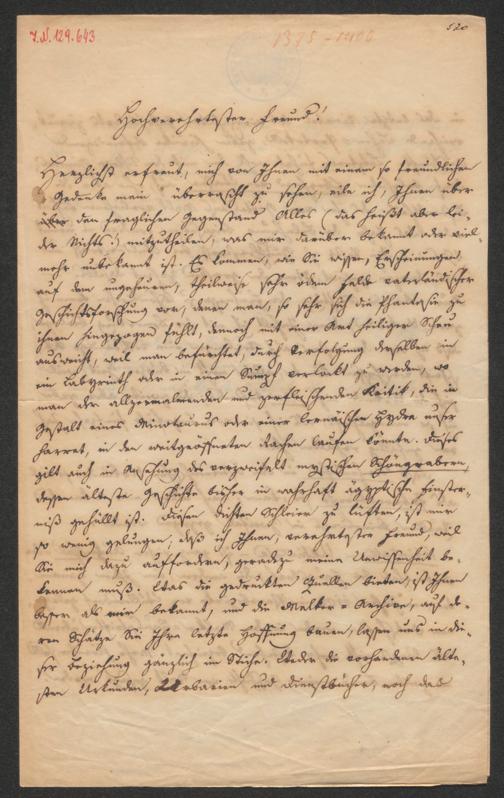 I.N. 129.643
1375-1400
520
Hochverehrtester Freund!
Herzlichst erfreut, mich von Ihnen mit einem so freundlichen
"Gedenke mein" überrascht zu sehen, eile ich, Ihnen über
über den fraglichen Gegenstand Alles (das heißt aber lei-
der Nichts!) mitzutheilen, was mir darüber bekannt oder viel-
mehr unbekannt ist. Es kommen, wie Sie wissen, Erscheinungen
auf dem ungeheuern, theilweise sehr öden Felde vaterländischer
Geschichtsforschung vor, denen man, so sehr sich die Phantasie zu
ihnen hingezogen fühlt, dennoch mit einer Art heiliger Scheu
ausweicht, weil man befürchtet, durch Verfolgung derselben in
ein Labyrinth oder in einen Sumpf verlockt zu werden, wo
man der allzermalmenden und zerfleischenden Kritik, die in
Gestalt eines Minotaurus oder einer lernäischen Hydra unser
harret, in den weitgeöffneten Rachen laufen könnte. Dieses
gilt auch in Ansehung des verzweifelt mystischen Schöngrabern,
dessen älteste Geschichte bisher in wahrhaft ägyptische Finster-
niß gehüllt ist. Diesen dichten Schleier zu lüften, ist mir
so wenig gelungen, daß ich Ihnen, verehrtester Freund, weil
Sie mich dazu auffordern, geradezu meine Unwissenheit be-
kennen muß. Was die gedruckten Quellen bieten, ist Ihnen
besser als mir bekannt, und die Melker-Archive, auf de-
ren Schätze Sie Ihre letzte Hoffnung bauen, lassen uns in die-
ser Beziehung gänzlich im Stiche. Weder die vorhandenen älte-
sten Urkunden, Urbarien und Dienstbücher, noch das